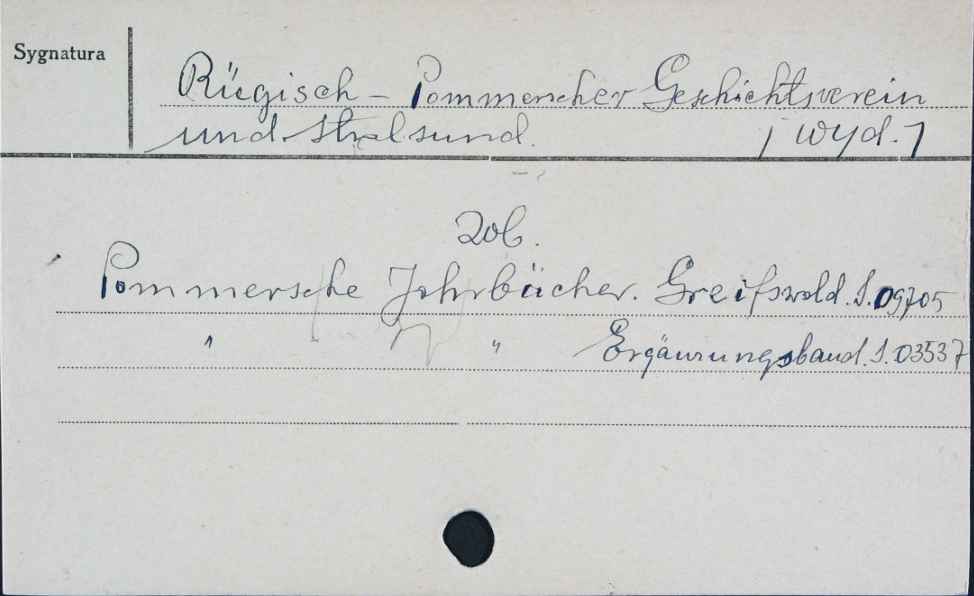 Sygnatura
Rügisch - Pommerscher Geschichtsverein
und Stralsund. / wyd. /
Zob.
Pommersche Jahrbücher. Greifswald. S. 09705
" " Ergänzungsband. S. 03537